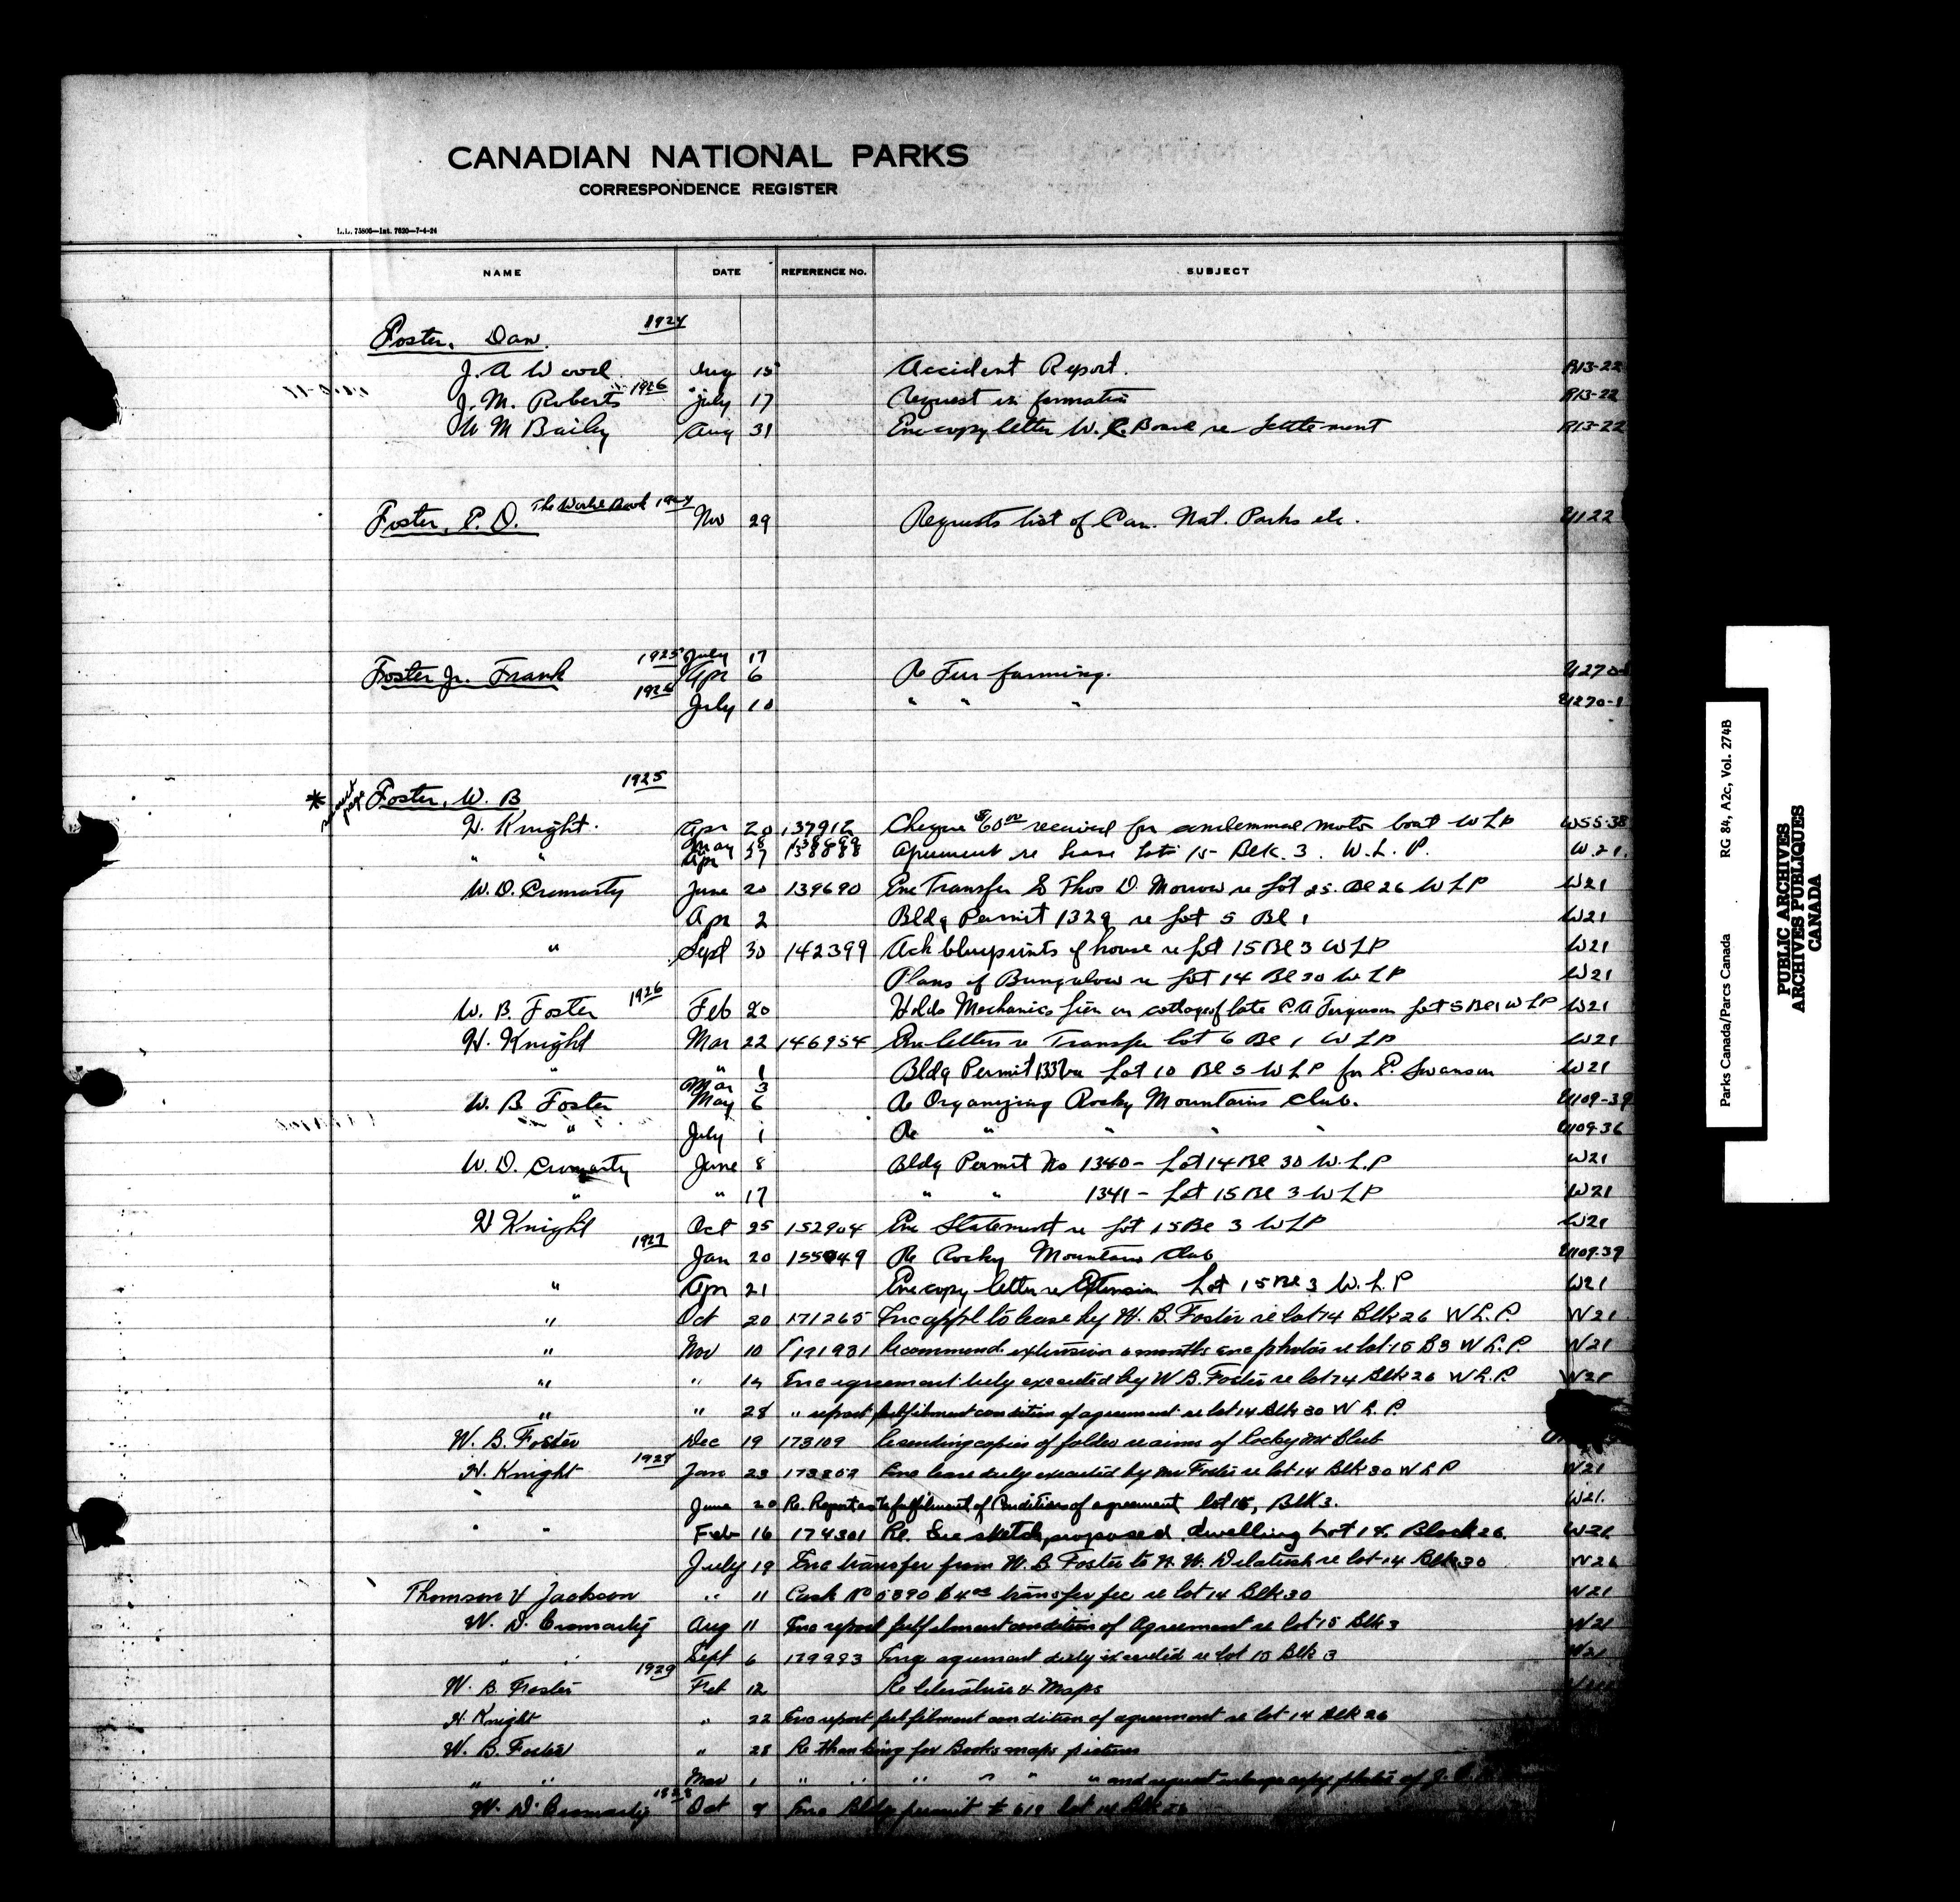 CANADIAN NATIONAL PARKS
CORRESPONDENCE REGISTER
L.L. 75806—Int. 7620—7-4-24
NAME DATE REFERENCE No. SUBJECT
Foster, Dan. 1924
J. A Wood Aug 15 Accident Report. R13-22
J. M. Roberts 1926 July 17 Request information R13-22
M Baily Aug 31 Enc copy letter W. C. Board re Settlement R13-22
Foster, E. D. The 1924 Nov 29 Requests list of Can. Nat. Parks etc. U122
1925 July 17
Foster Jr. Frank Apr 6 Re Fur farming. U270-1
1926 July 10 " " " U270-1
* Foster, W. B 1925
H. Knight. Apr 20 137912 Cheque $60.00 received for condemned motor boat W L P W55-38
May 18
" " Apr 27 138088 Agreement re Lease Lot 15 Blk. 3. W. L. P. W.21.
W. D. Cromarty June 20 139690 Enc Transfer to Thos D. Morrow re Lot 25. Bl 26 W L P W21
Apr 2 Bldg Permit 1329 re Lot 5 Bl 1 W21
" Sept 30 142399 Ack blueprints of house re Lot 15 Bl 3 W L P W21
Plans of Bungalow re Lot 14 Bl 30 W L P W21
W. B. Foster 1926 Feb 20 Holds Mechanics Lien on cottage of late C. A Ferguson Lot 5 Bl 1 W L P W21
H. Knight Mar 22 146954 Enc letters re Transfer lot 6 Bl 1 W L P W21
" " 1 Bldg Permit 1337 re Lot 10 Bl 5 W L P for E. Swanson W21
Mar 3
W. B Foster May 6 Re Organizing Rocky Mountains Club. U109-39
" July 1 Re " " " " U109-36
W. D. Cromarty June 8 Bldg Permit No 1340 - Lot 14 Bl 30 W. L. P W21
" " 17 " " 1341 - Lot 15 Bl 3 W L P W21
H Knight Oct 25 152904 Enc Statement re Lot 15 Bl 3 W L P W21
1927 Jan 20 155049 Re Rocky Mountain Club U109-39
" Apr 21 Enc copy letter re Extension Lot 15 Bl 3 W. L. P W21
" Oct 20 171265 Enc appl to lease by W. B. Foster re lot 14 Blk 26 W L. P. W21
" Nov 10 171931 Recommends extension 6 months enc photos re lot 15 B3 W L. P W21
" " 14 Enc agreement duly executed by W B. Foster re lot 14 Blk 26 W L. P. W21
" " 28 " report fulfilment condition of agreement re lot 14 Blk 30 W L. P.
W. B. Foster Dec 19 173109 Re sending copies of folder re aims of Rocky Mt Club
H. Knight 1928 Jan 23 173859 Enc lease duly executed by Mr Foster re lot 14 Blk 30 W L P W21
" " June 20 Re. Report as to fulfilment of Conditions of agreement lot 15, Blk 3. W21.
" " Feb 16 174301 Re. Enc sketch proposed dwelling Lot 14. Block 26. W21
July 19 Enc transfer from W. B. Foster to re lot 14 Blk 30 W26
Thomson & Jackson " 11 Cash No 5890 $4.00 transfer fee re lot 14 Blk 30 W21
W. D. Cromarty Aug 11 Enc report fulfilment condition of Agreement re lot 15 Blk 3 W21
" " Sept 6 179993 Enc agreement duly executed re lot 15 Blk 3 W21
W. B. Foster 1929 Feb 12 Re literature & Maps
H. Knight " 22 Enc report fulfilment condition of agreement re lot 14 Blk 26
W. B. Foster " 28 Re thanking for Books maps pictures
" " Mar 1 " " " " " " and request copy photos of J.
W. D. Cromarty 1928 Oct 9 Enc Bldg permit # 619 lot 14 Blk 26
Parks Canada/Parcs Canada RG 84, A2c, Vol. 274B
PUBLIC ARCHIVES
ARCHIVES PUBLIQUES
CANADA